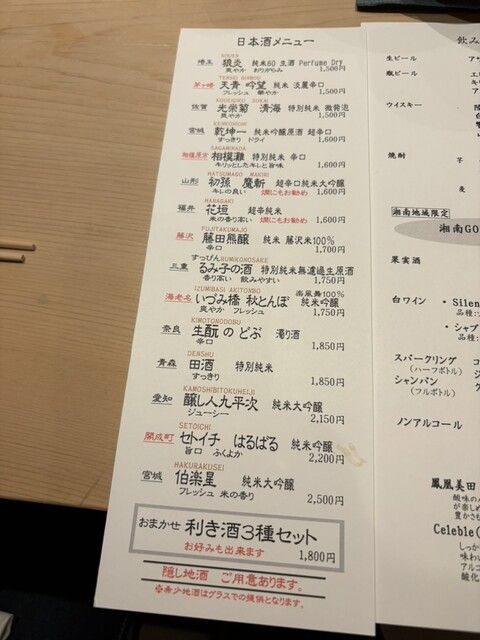 日本酒メニュー
埼玉 狼炎 純米60 生酒 Perfume Dry
爽やか おりがらみ 1,500円
TENSEI GINBOU
茅ヶ崎 天青 吟望 純米 淡麗辛口
フレッシュ 華やか 1,500円
佐賀 光栄菊 清海 特別純米 微発泡
爽やか 1,500円
KENKONICHI
宮城 乾坤一 純米吟醸原酒 超辛口
すっきり ドライ 1,600円
SAGAMINADA
相模原市 相模灘 特別純米 辛口
キリッとしたキレと旨味 1,600円
HATSUMAGO MAKIRI
山形 初孫 魔斬 超辛口純米大吟醸
キレの良い 燗にもお勧め 1,600円
HANAGAKI
福井 花垣 超辛純米
米の香り高い 燗にもお勧め 1,600円
FUJITAKUMAJO
藤沢 藤田熊醸 純米 藤沢米100%
辛口 1,700円
すっぴんRUMIKONOSAKE
三重 るみ子の酒 特別純米無濾過生原酒
香り高い 飲みやすい 1,750円
IZUMIBASI AKITONBO 楽風舞100%
海老名 いづみ橋 秋とんぼ 純米吟醸
爽やか フレッシュ 1,750円
KIMOTONODOBU
奈良 生酛のどぶ 濁り酒
辛口 1,850円
DENSHU
青森 田酒 特別純米
すっきり 1,850円
KAMOSHIBITOKUHEIJI
愛知 醸し人九平次 純米大吟醸
ジューシー 2,150円
SETOICHI
開成町 セトイチ はるばる 純米吟醸
旨口 ふくよか 2,200円
HAKURAKUSEI
宮城 伯楽星 純米大吟醸
フレッシュ 米の香り 2,500円
おまかせ 利き酒3種セット
お好みも出来ます 1,800円
隠し地酒 ご用意あります。
✿希少地酒はグラスでの提供となります。
飲み
生ビール
瓶ビール
ウイスキー
焼酎 芋
麦
湘南地域限定
湘南GO
果実酒
白ワイン ・Silen
品種:
・シャブ
品種:
スパークリング
(ハーフボトル)
シャンパン
(フルボトル)
ノンアルコール
鳳凰美田
酸味の
が楽しめ
豊かさも
Celeble(
しっか
味わい
アルコ
酸化